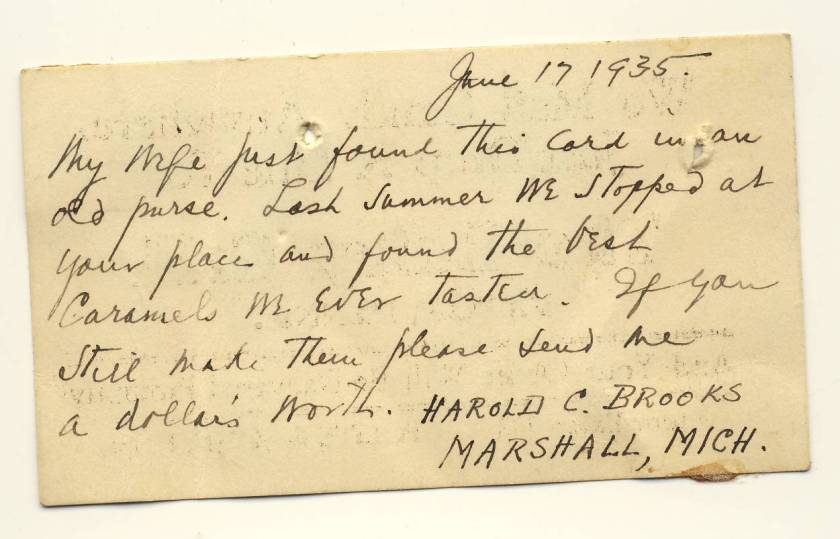 June 17 1935.
My wife just found this card in an
old purse. Last summer we stopped at
your place and found the best
Caramels we ever tasted. If you
still make them please send me
a dollar's worth. HAROLD C. BROOKS
MARSHALL, MICH.